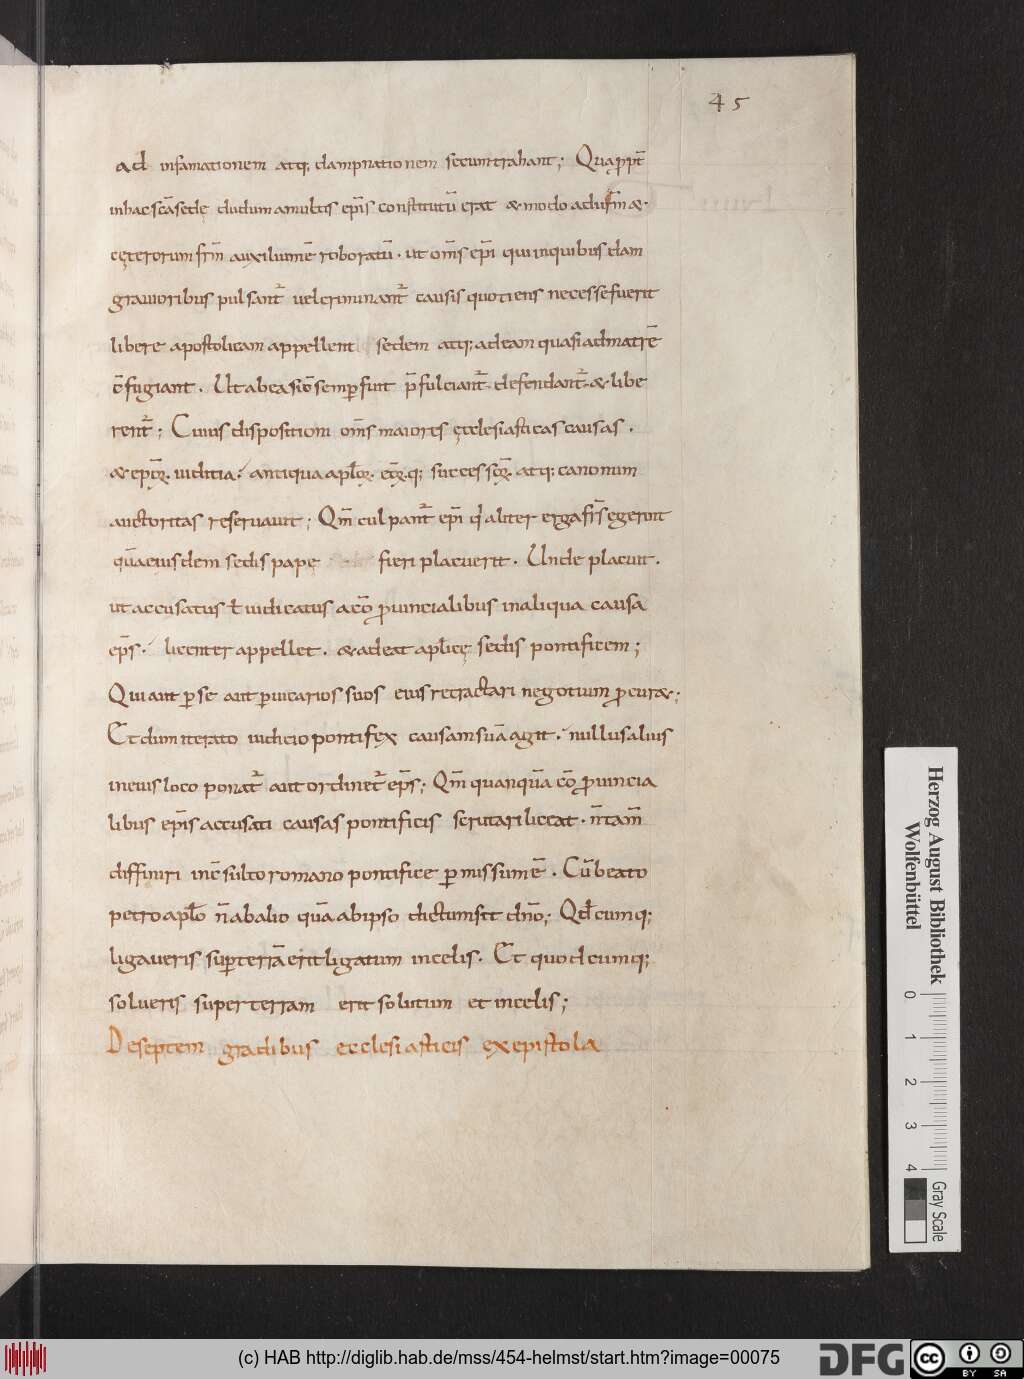 45
ad infamationem atq; dampnationem secum trahant; Quapropt̄
in hac sc̄a sede dudum a multis ep̄is constitutū erat & modo a du͞m &
cęterorum frm̄ auxilium ē roboratū. ut om̄s ep̄i qui in quibusdam
grauioribus pulsant᷑ uel criminant᷑ causis quotiens necesse fuerit
libere apostolicam appellent sedem atq; ad eam quasi ad matrē
c̄fugiant. Ut ab ea sic̄ semp̱ fuit p̄fulciant᷑. defendant᷑. & libe
rent᷑; Cuius dispositioni om̄s maiores ęcclesiasticas causas.
& ep̄oꝝ. iuditia. antiqua apl̄oꝝ. eoꝝq; successoꝝ. atq; canonum
auctoritas reseruauit; Qm̄ culpant᷑ ep̄i qi aliter erga fr̄s egerint
quā eiusdem sedis pape fieri placuerit. Unde placuit.
ut accusatus ł iudicatus a cō ꝓuincialibus in aliqua causa
ep̄s. licenter appellet. & adeat apl̄icę sedis pontificem;
Qui aut ꝑ se aut ꝑ uicarios suos eius retractari negotium ꝓcur&;
Et dum iterato iudicio pontifex causam suā agit. nullus alius
in eius loco ponat᷑ aut ordinet᷑ ep̄s; Qm̄ quanquā cō ꝓuincia
libus ep̄is accusati causas pontificis scrutari liceat. n̄ tam̄
diffiniri incsulto romano pontifice ꝑmissum ē. Cū beato
petro apl̄o n̄ ab alio quā ab ipso dictum sit dn̄o; Qd̄cumq;
ligaueris sup̱ terrā erit ligatum in celis. Et quodcumq;
solueris super terram erit solutum et in celis;
De septem gradibus ecclesiasticis ex epistola
Herzog August Bibliothek
Wolfenbüttel
0 1 2 3 4
Gray Scale
(c) HAB http://diglib.hab.de/mss/454-helmst/start.htm?image=00075
DFG
cc BY SA